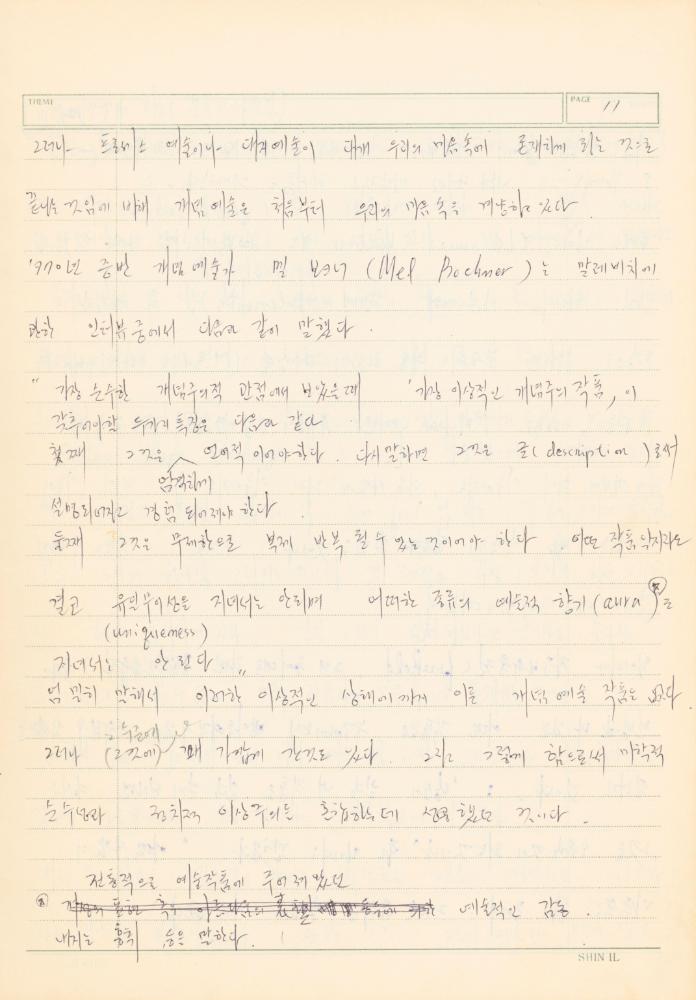 THEME
PAGE 11
그러나 프로세스 예술이나 대지예술이 대개 우리의 마음속에 존재하게 되는 것으로
끝나는 것임에 비해 개념예술은 처음부터 우리의 마음속을 겨냥하고 있다.
1970년 중반 개념예술가 멜 보크너 (Mel Bochner)는 말레비치에
관한 인터뷰중에서 다음과 같이 말했다.
" 가장 순수한 개념주의적 관점에서 보았을때 '가장 이상적인 개념주의 작품,이
갖추어야할 두가지 특징은 다음과 같다
첫째 그것은 언어적 이어야한다. 다시말하면 그것은 글(description)로써
엄격하게
설명되어지고 경험 되어져야 한다.
둘째 그것은 무제한으로 복제 반복 될 수 있는 것이어야 한다. 어떤 작품일지라도
결코 유일무이성을 지녀서는 안되며 어떠한 종류의 예술적 향기(aura)도
(uniqueness)
지녀서는 안된다"
엄밀히 말해서 이러한 이상적인 상태에까지 이른 개념예술 작품은 없다
그러나 (그것에) 꽤 가깝게 간것도 있다. 그리고 그렇게 함으로써 미학적
순수성과 정치적 이상주의를 혼합하는데 성공했던 것이다.
전통적으로 예술작품에 주어져 왔던
예술적인 감동.
내지는 흥취 등을 말한다.
SHIN IL